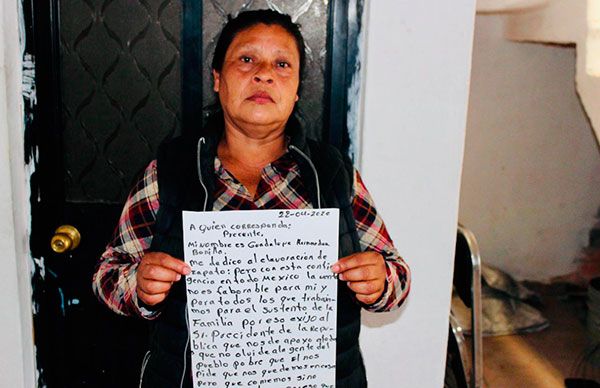 22-04-2020
A Quien corresponda:
Precente.
Mi Nombre es Guadalupe
Bonilla.
me dedico al elavoración de
zapato: pero con esta conti
gencia en todo Mexico la
no es faborable para mi y
para todos los que trabaja
mos para el sustento de la
Familia por eso exijo al
Sr. Precidente de la Repu
blica que nos de apoyo
que no olvide ala gente del
pueblo pobre que El nos
Pide que nos quedemos en casa
pero que comemos sino